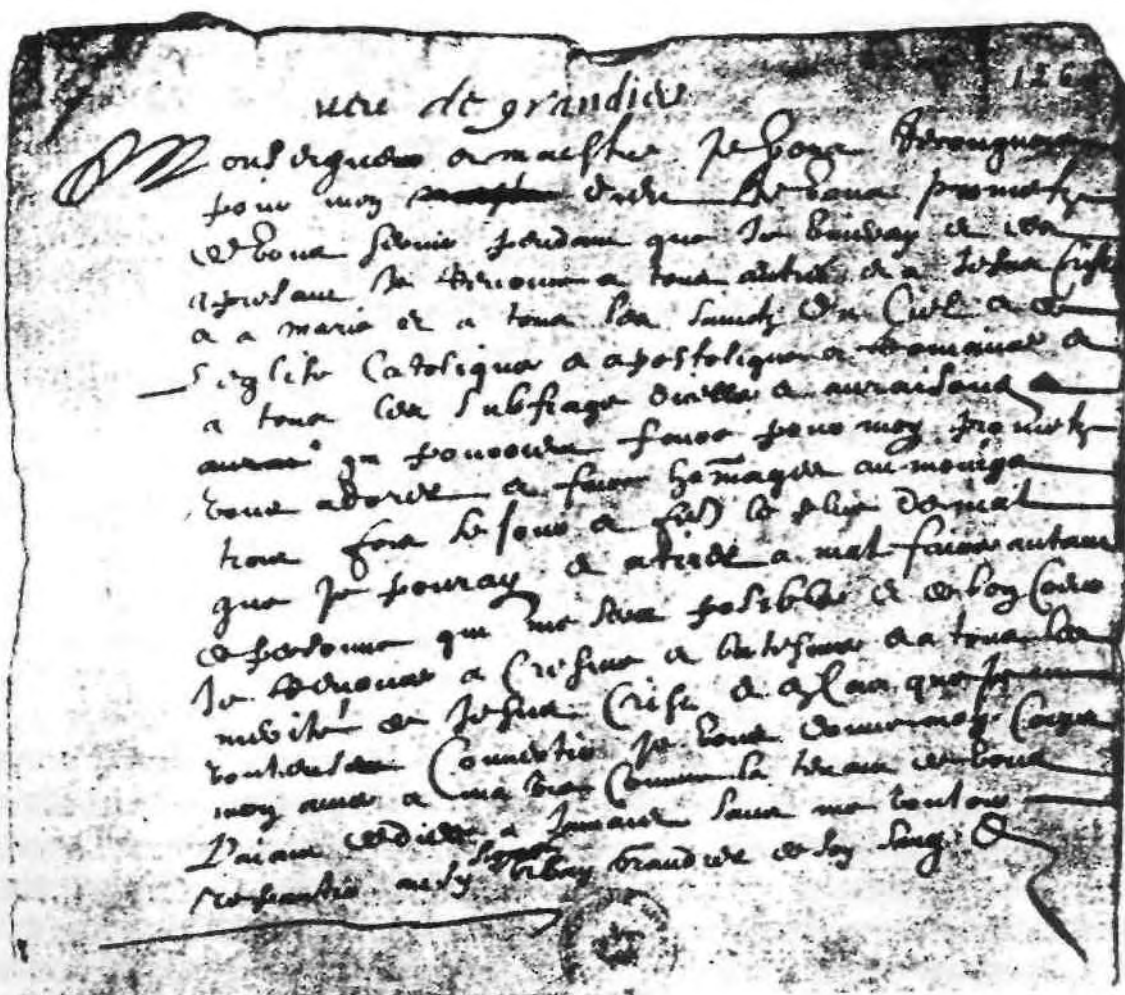 veu de grandier
126
Monseigneur et maistre je vous
pour moy dieu Je vous prometz
de vous servir pendant que Je vivray et des
a presant Je Renonce a tous autres et a Jesus Crist
et a marie et a tous les sainctz du Ciel et a
l eglise Catolique et apostolique et Romaine et
a tous les subfrage dicelle et auraisons
on pouroict faire pour moy prometz
vous adorer et faire hommages au moings
trois fois le jour et le plus de mal
que je pouray et atirer a mal faire autant
de personne qui me sera posible et de bon Coeur
Je Renonce a Cresme et batesme et a tous les
merité de Jesus Crist et au Cas que je
Convertir je vous donne moy Corps
moy ame et ma vie Comme la tenant de vous
L'aiant dediee a Jamais sans me vouloir
repantir Signé Urbain Grandier de son sang